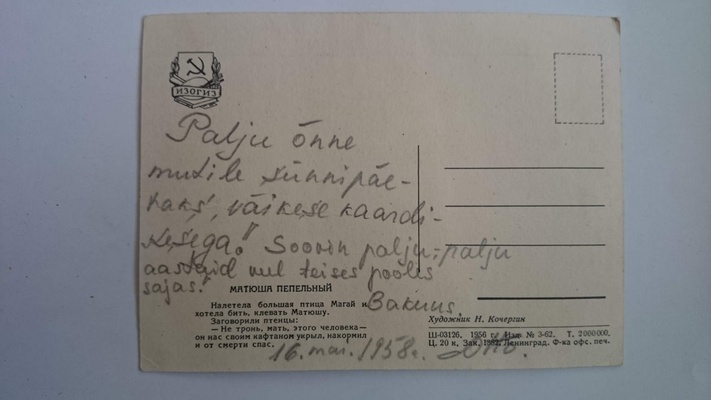 ИЗОГИЗ
Palju õnne
mutile sünnipäe-
vaks, väikese kaardi-
kesega! Soovin palju-palju
aastaid veel teises pooles
sajas!
МАТЮША ПЕПЕЛЬНЫЙ
Налетела большая птица Магай и
хотела бить, клевать Матюшу.
Заговорили птенцы:
— Не тронь, мать, этого человека —
он нас своим кафтаном укрыл, накормил
и от смерти спас.
16. mai. 1958a.
Художник Н. Кочергин
Ш-03126. 1956 г. Изд. № 3-62. Т. 2000000.
Ц. 20 к. Зак. Ленинград. Ф-ка офс. печ.